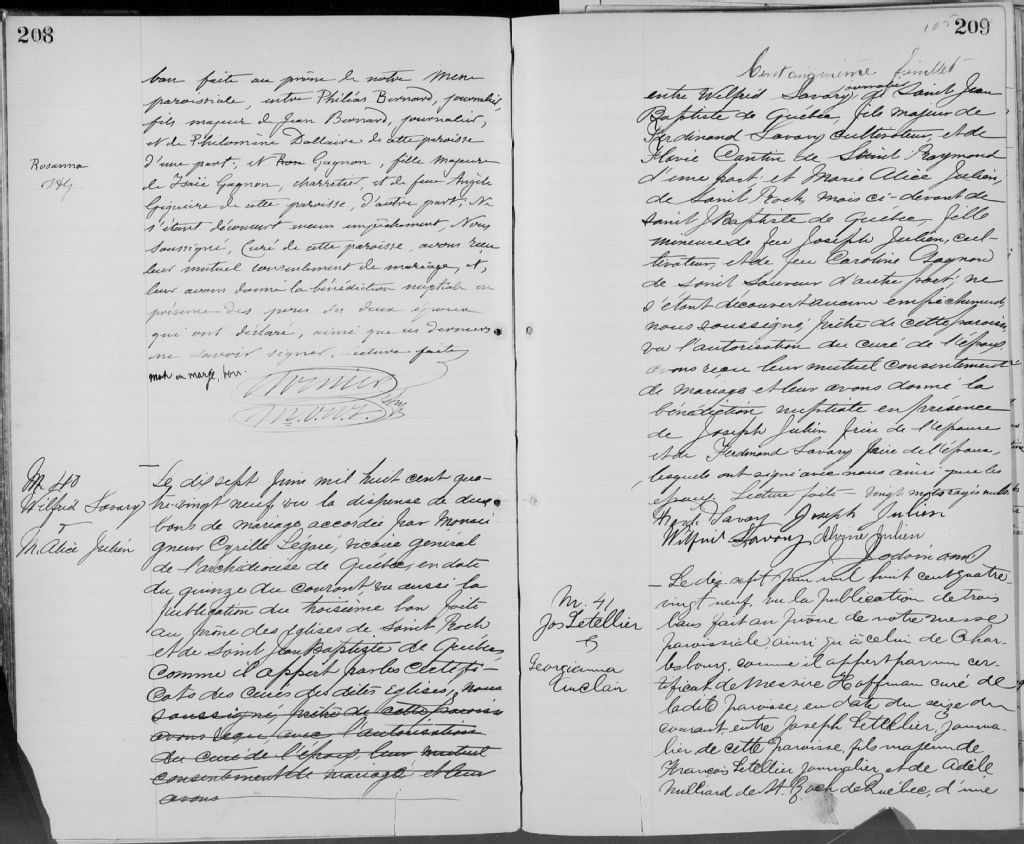 208
ban faite au prône de notre messe
paroissiale, entre Philéas Bernard, journalier,
fils majeur de Jean Bernard, journalier,
et de Philomène Dallaire de cette paroisse
d'une part; et Gagnon, fille majeure
de Isaïe Gagnon, charretier, et de feue Angèle
Giguère de cette paroisse, d'autre part; Ne
s'étant découvert aucun empêchement, Nous
soussigné, Curé de cette paroisse, avons reçu
leur mutuel consentement de mariage, et,
leur avons donné la bénédiction nuptiale en
présence des pères des deux époux
qui ont déclaré, ainsi que ces derniers
ne savoir signer. Lecture faite
mot en marge, bon.
Rosanna
M 40
Wilfrid Savary
&
M. Alice Julien
Le dix sept Juin mil huit cent qua-
tre-vingt neuf, vu la dispense de deux
bans de mariage accordée par Monsei
gneur Cyrille Légaré, vicaire général
de l'archidiocèse de Québec, en date
du quinze du courant, vu aussi la
publication du troisième ban faite
au prône des Eglises de Saint Roch
et de Saint Jean Baptiste de Québec,
comme il appert par les Certifi-
cats des Curés des dites Eglises, Nous
soussigné, prêtre de cette paroisse
avons reçu avec l'autorisation
du curé de l'époux, leur mutuel
consentement de mariage et leur
avons
105
209
Cent cinquième feuillet
entre Wilfrid Savary, journalier de Saint Jean
Baptiste de Québec, fils majeur de
Ferdinand Savary Cultivateur, et de
Flavie Cantin de Saint Raymond
d'une part; et Marie Alice Julien,
de Saint Roch, mais ci-devant de
Saint J. Baptiste de Québec, fille
mineure de feu Joseph Julien, cul-
tivateur, et de feu Caroline Gagnon
de Saint Sauveur d'autre part; ne
s'étant découvert aucun empêchement,
nous soussigné, prêtre de cette paroisse,
vu l'autorisation du curé de l'époux,
avons reçu leur mutuel consentement
de mariage et leur avons donné la
bénédiction nuptiale en présence
de Joseph Julien frère de l'épouse
et de Ferdinand Savary père de l'époux,
lesquels ont signé avec nous ainsi que les
époux. Lecture faite - vingt mots rayés nuls.
Savary Joseph Julien
Wilfrid Savary Julien
M. 41
Jos Letellier
&
Georgianna
Auclair
Le dix sept Juin mil huit cent quatre-
vingt neuf, vu la publication de trois
bans fait au prône de notre messe
paroissiale, ainsi qu'à celui de Char-
lesbourg, comme il appert par un cer-
tificat de Messire Hoffman curé de
la dite paroisse, en date du seize du
courant, entre Joseph Letellier, journa-
lier de cette paroisse, fils majeur de
François Letellier journalier et de Adèle
Milliard de St. Roch de Québec, d'une